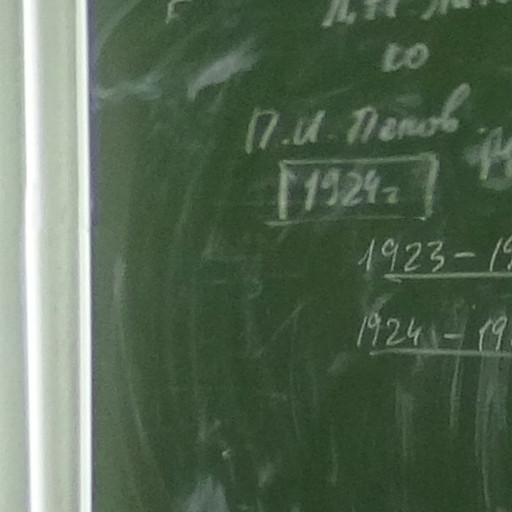 со
П.И. Попов
1924г
1923 - 19
1924 - 19